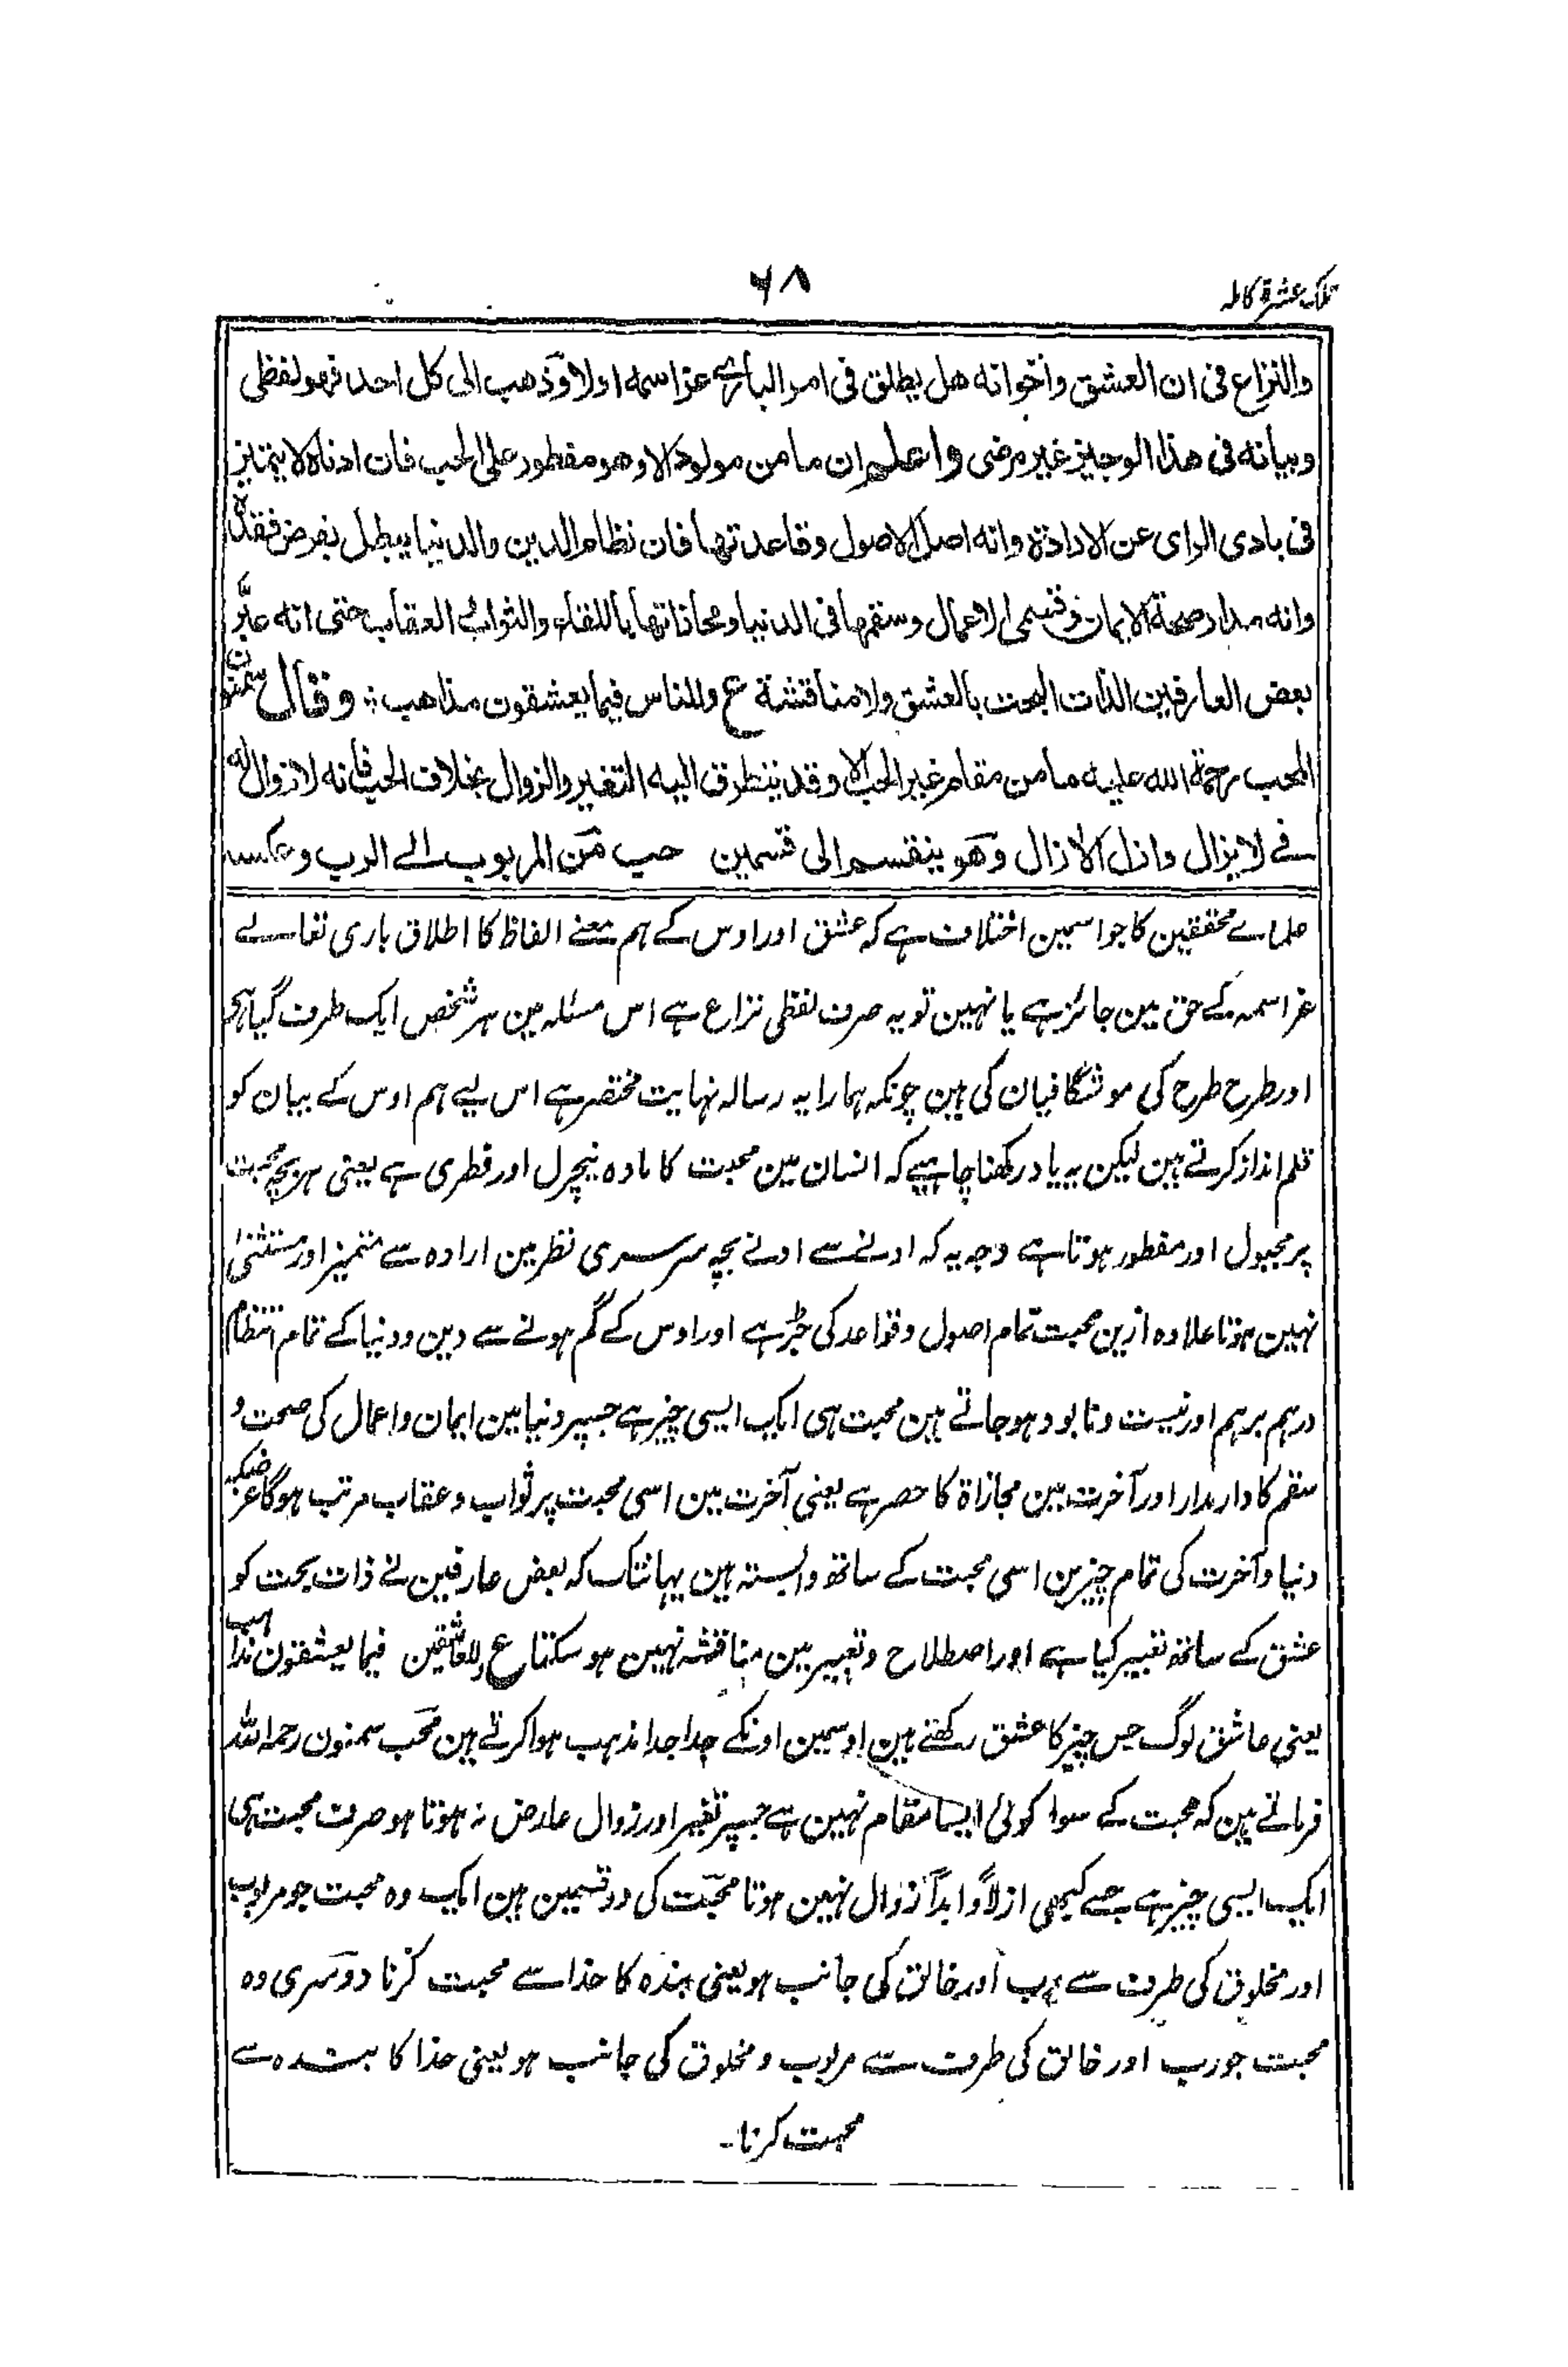 تلک عشرة کاملہ
۶۸
والنزاع فی ان العشق واخوانه هل یطلق فی امر الباری عز اسمه اولا وذهب الی کل احد فهو لفظی
وبیانه فی هذا الوجیز غیر مرضی واعلم ان ما من مولود الا وهو مفطور علی الحب فان ادناه لا یتمایز
فی بادی الرای عن الارادة وانه اصل الاصول وقاعدتها فان نظام الدین والدنیا یبطل بفرض فقده
وانه مدار صحة الایمان وقسمی الاعمال وسقمها فی الدنیا ومجازاتها باللقاء والثواب العقاب حتی انه عبّر
بعض العارفین الذات البحت بالعشق ولا مناقشة ع وللناس فیما یعشقون مذاهب ؛ وقال سمنون
المحب رحمة الله علیه ما من مقام غیر الحب الا وقد یتطرق الیه التغیر والزوال بخلاف الحب فانه لا زوال له
فے لا یزال وازل الازال وهو ینقسم الی قسمین حب من المربوب الے الرب وعکسه
علماے محققین کا جو اسمین اختلاف ہے کہ عشق اور اوس کے ہم معنے الفاظ کا اطلاق باری تعالے
عز اسمہ کے حق مین جائز ہے یا نہین تو یہ صرف لفظی نزاع ہے اس مسئلہ مین ہر شخص ایک طرف گیا ہے
اور طرح طرح کی موشگافیان کی ہین چونکہ ہمارا یہ رسالہ نہایت مختصر ہے اس لیے ہم اوس کے بیان کو
قلم انداز کرتے ہین لیکن یہ یاد رکھنا چاہیے کہ انسان مین محبت کا مادہ نیچرل اور فطری ہے یعنی ہر بچہ محبت
پر مجبول اور مفطور ہوتا ہے وجہ یہ کہ ادنے سے ادنے بچہ سرسری نظر مین ارادہ سے متمیز اور مستثنیٰ
نہین ہوتا علاوہ ازین محبت تمام اصول وقواعد کی جڑ ہے اور اوس کے گم ہونے سے دین ودنیا کے تمام انتظام
درہم برہم اور نیست ونابود ہوجاتے ہین محبت ہی ایک ایسی چیز ہے جسپر دنیا مین ایمان واعمال کی صحت و
سقم کا دارمدار اور آخرت مین مجازاة کا حصر ہے یعنی آخرت مین اسی محبت پر ثواب وعقاب مرتب ہوگا غرضکہ
دنیا وآخرت کی تمام چیزین اسی محبت کے ساتھ وابستہ ہین یہانتک کہ بعض عارفین نے ذات بحت کو
عشق کے ساتھ تعبیر کیا ہے اور اصطلاح وتعبیر مین مناقشہ نہین ہوسکتا ع وللعاشقین فیما یعشقون مذاہب
یعنی عاشق لوگ جس چیز کا عشق رکھتے ہین اوسمین اونکے جدا جدا مذہب ہوا کرتے ہین محب سمنون رحمہ اللہ
فرماتے ہین کہ محبت کے سوا کوئی ایسا مقام نہین ہے جسپر تغیر اور زوال عارض نہ ہوتا ہو صرف محبت ہی
ایک ایسی چیز ہے جسے کبھی ازلاً وابداً زوال نہین ہوتا محبت کی دو قسمین ہین ایک وہ محبت جو مربوب
اور مخلوق کی طرف سے رب اور خالق کی جانب ہو یعنی بندہ کا خدا سے محبت کرنا دوسری وہ
محبت جو رب اور خالق کی طرف سے مربوب ومخلوق کی جانب ہو یعنی خدا کا بندہ سے
محبت کرنا۔